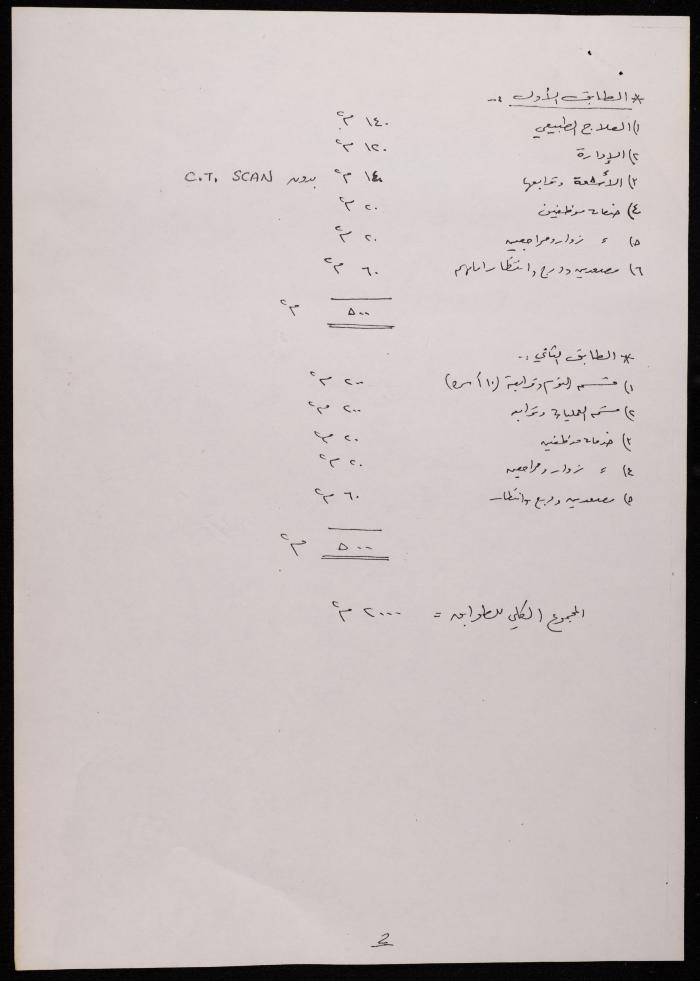 * الطابق الأول :-
١) العلاج الطبيعي ١٤٠ م٢
٢) الإدارة ١٢٠ م٢
٣) الأشعة وتوابعها ١٤٠ م٢ بدون C.T. SCAN
٤) خدمات موظفين ٢٠ م٢
٥) ٤ زوار ومراجعين ٢٠ م٢
٦) مصعدين ودرج وانتظار امامهم ٦٠ م٢
٥٠٠ م٢
* الطابق الثاني :-
١) قسم النوم وتوابعه (١٠ أسرة) ٢٠٠ م٢
٢) قسم العمليات وتوابعه ٢٠٠ م٢
٣) خدمات موظفين ٢٠ م٢
٤) ٤ زوار ومراجعين ٢٠ م٢
٥) مصعدين ودرج وانتظار ٦٠ م٢
٥٠٠ م٢
المجموع الكلي للطوابق = ٢٠٠٠ م٢
2